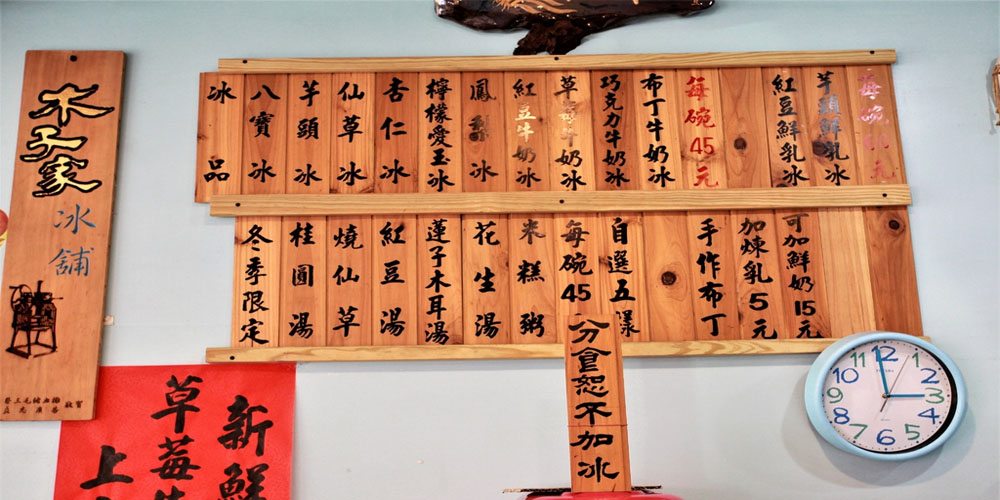 木子家
冰舖
冰品
八寶冰
芋頭冰
仙草冰
杏仁冰
檸檬愛玉冰
鳳梨冰
紅豆牛奶冰
草莓牛奶冰
巧克力牛奶冰
布丁牛奶冰
每碗45元
紅豆鮮乳冰
芋頭鮮乳冰
每碗60元
冬季限定
桂圓湯
燒仙草
紅豆湯
蓮子木耳湯
花生湯
米糕粥
每碗45
自選五樣
手作布丁
加煉乳5元
可加鮮奶15元
分食恕不加冰
新鮮
草莓牛
上
11 12 1
10 2
9 3
8 4
7 6 5